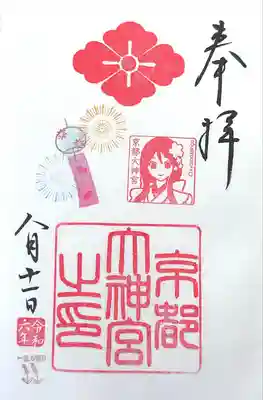 奉拝
京都大神宮
京都
大神宮
之印
八月十一日
令和
六年